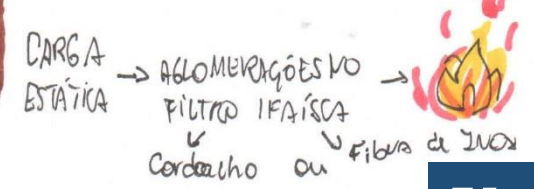 CARGA
ESTÁTICA
→ AGLOMERAÇÕES NO
FILTRO / FAÍSCA →
Cordoalho ou Fibra de Inox